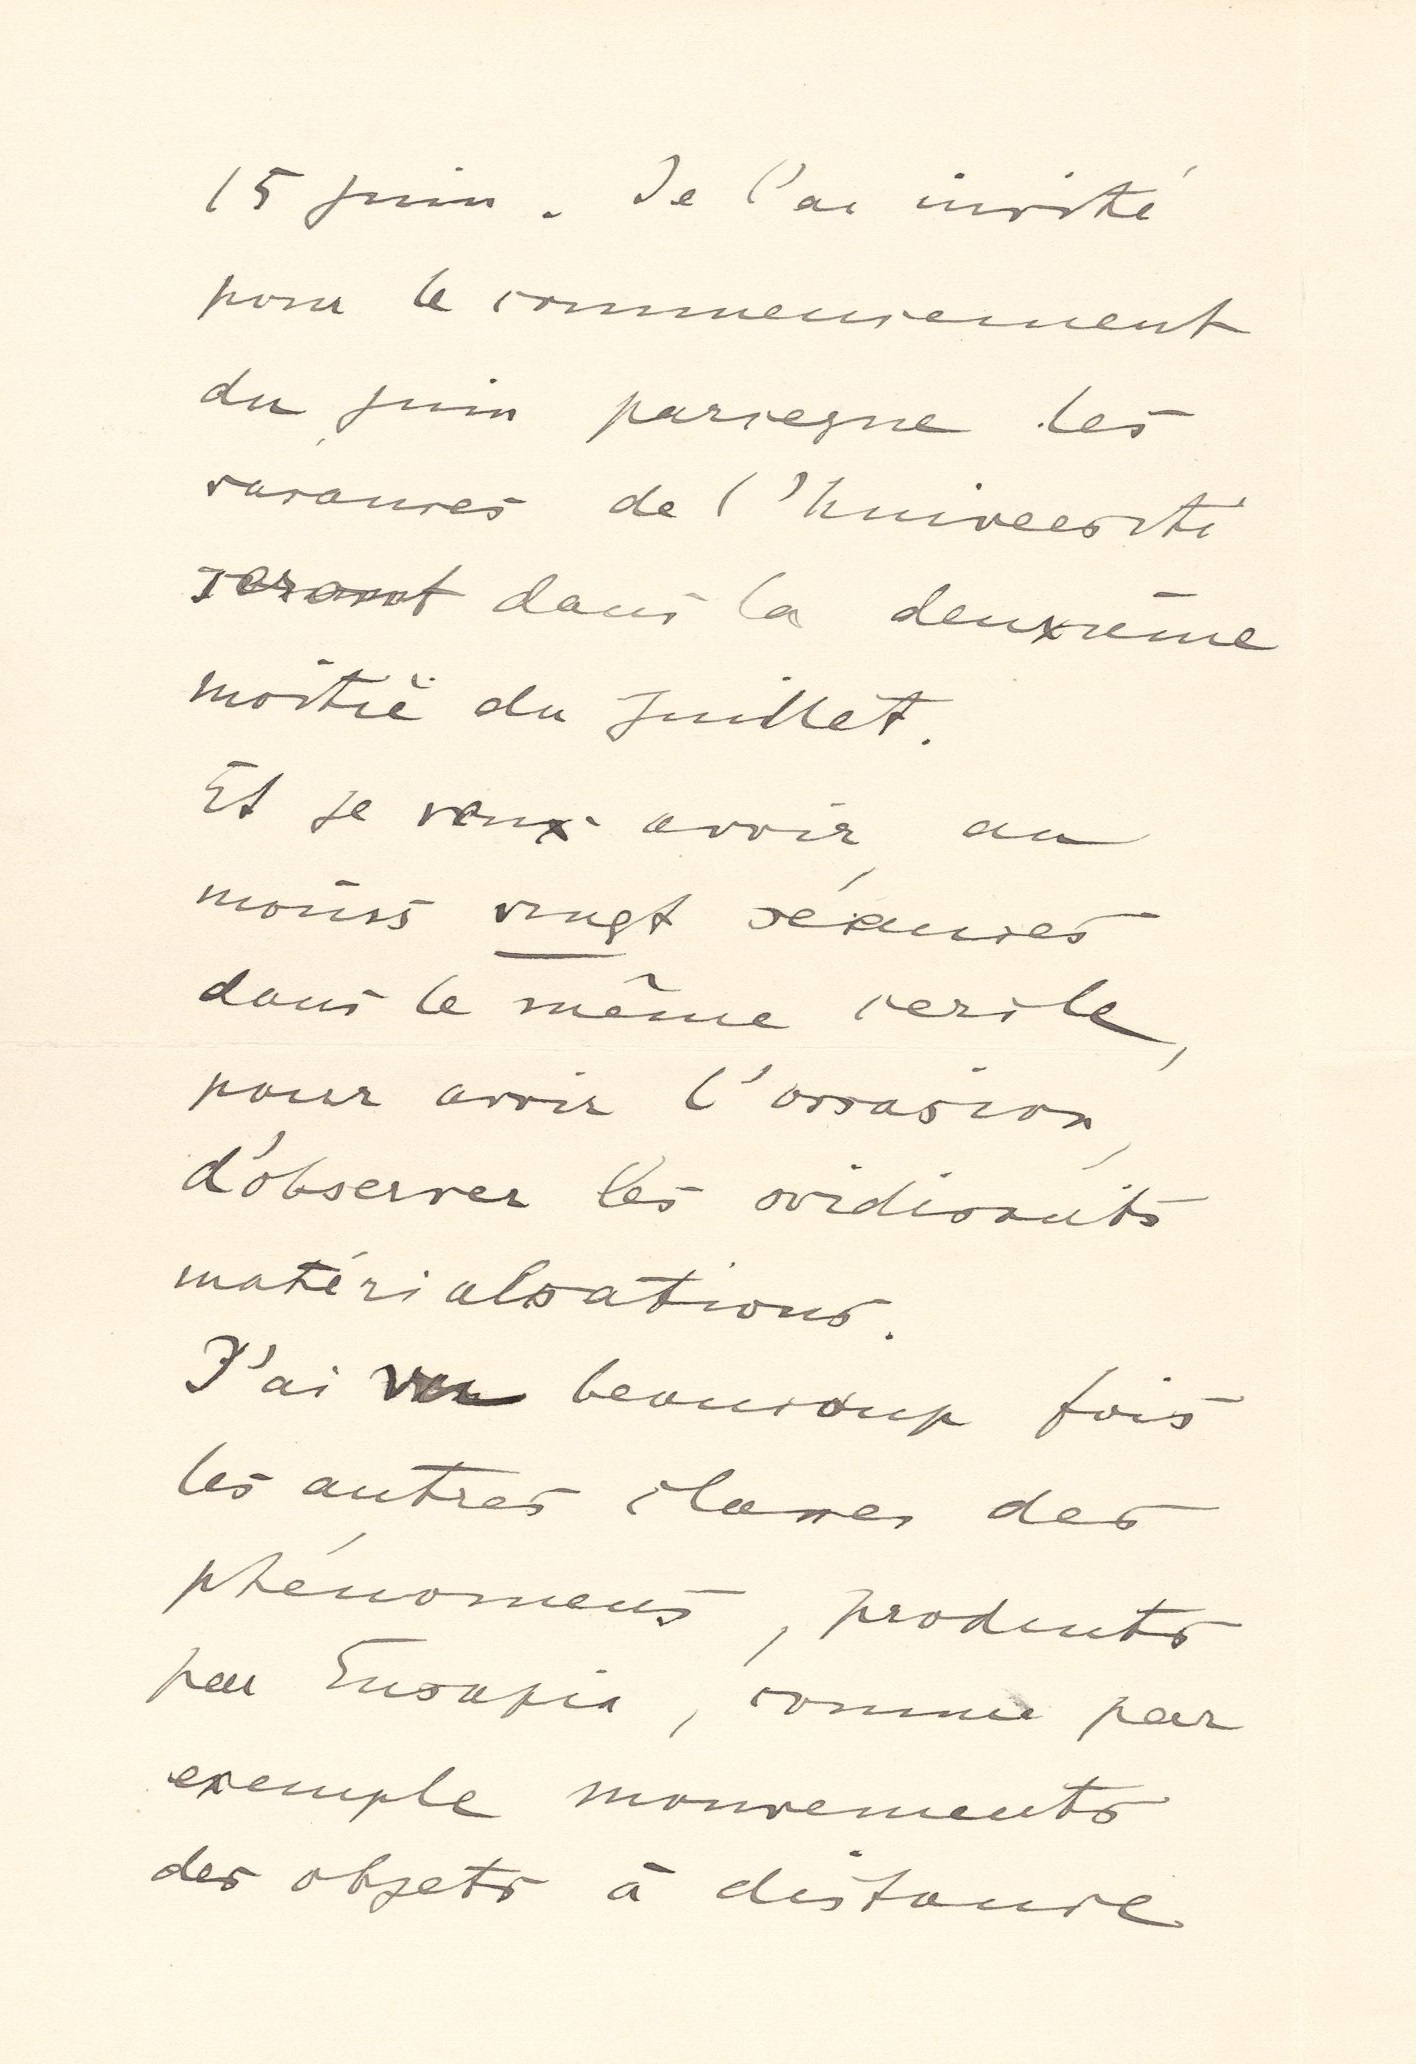 15 juin. Je l'ai invité
pour le commencement
du juin parceque les
vacances de l'Université
seront dans la deuxième
moitié du juillet.
Et je veux avoir, au
moins vingt séances
dans le même cercle,
pour avoir l'occasion,
d'observer les
matérialsations.
J'ai vu beaucoup fois
les autres classes des
phénomens, produits
par Eusapia, comme par
exemple mouvements
des objets à distance